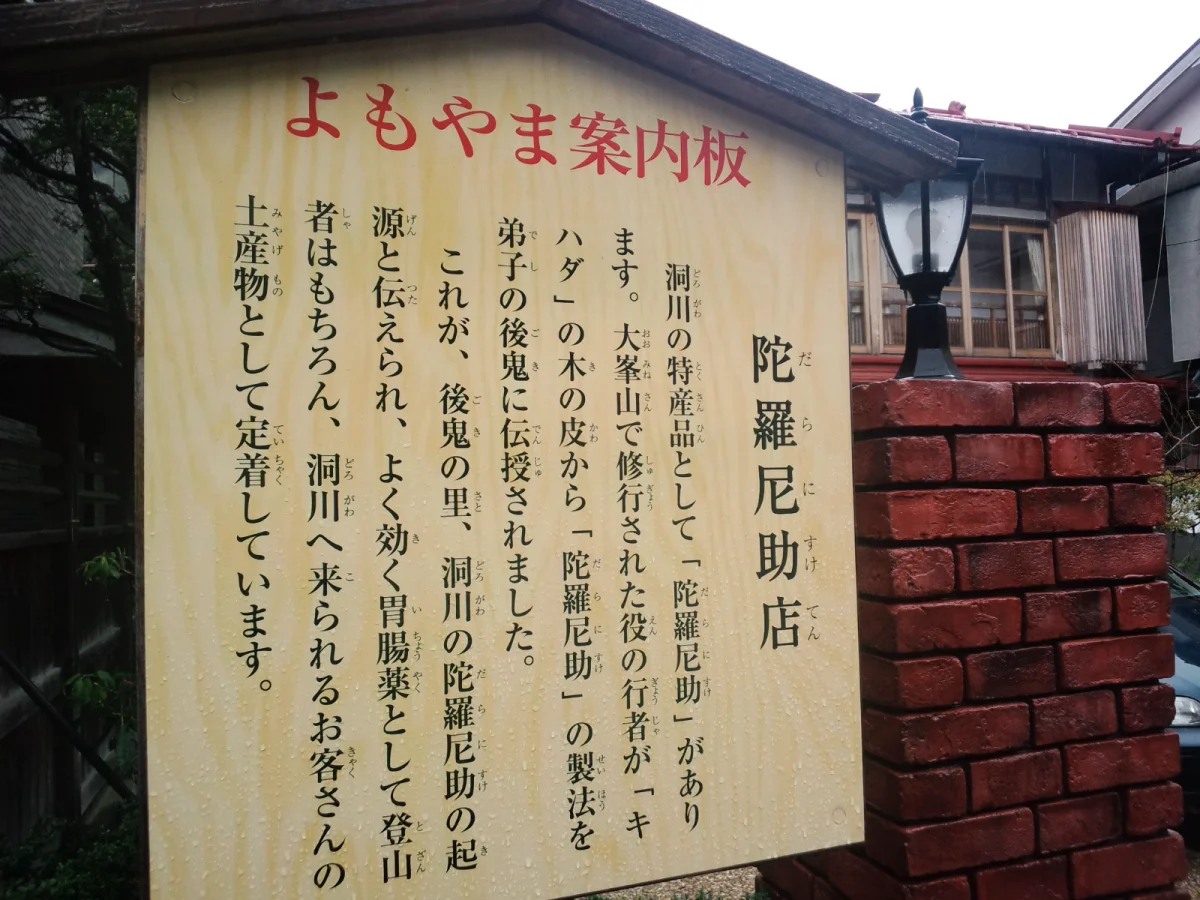 よもやま案内板
陀羅尼助店
洞川の特産品として「陀羅尼助」があり
ます。大峯山で修行された役の行者が「キ
ハダ」の木の皮から「陀羅尼助」の製法を
弟子の後鬼に伝授されました。
これが、後鬼の里、洞川の陀羅尼助の起
源と伝えられ、よく効く胃腸薬として登山
者はもちろん、洞川へ来られるお客さんの
土産物として定着しています。